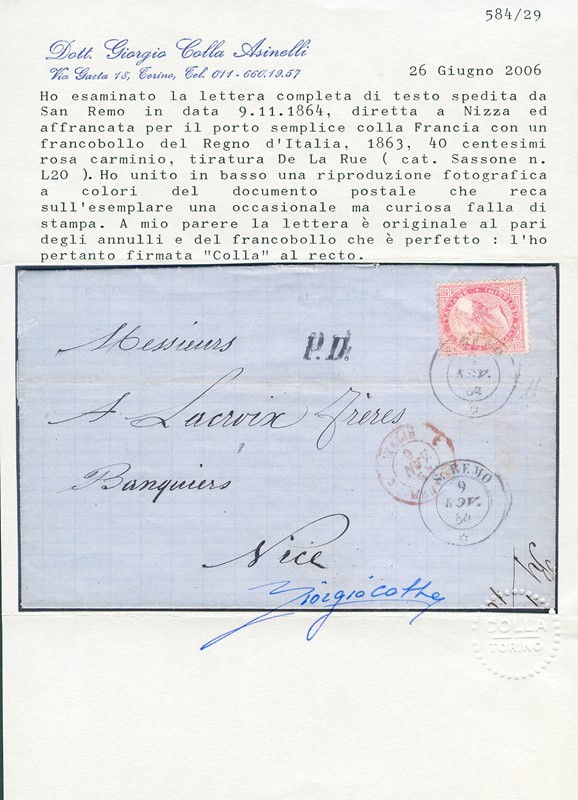 584/29
Dott. Giorgio Colla Asinelli
Via Gaeta 15, Torino, Tel. 011-660.19.57
26 Giugno 2006
Ho esaminato la lettera completa di testo spedita da
San Remo in data 9.11.1864, diretta a Nizza ed
affrancata per il porto semplice colla Francia con un
francobollo del Regno d'Italia, 1863, 40 centesimi
rosa carminio, tiratura De La Rue ( cat. Sassone n.
L20 ). Ho unito in basso una riproduzione fotografica
a colori del documento postale che reca
sull'esemplare una occasionale ma curiosa falla di
stampa. A mio parere la lettera è originale al pari
degli annulli e del francobollo che è perfetto : l'ho
pertanto firmata "Colla" al recto.
Messieurs
P.D.
NOV.
64
A Lacroix Frères
9
S. REMO
9
NOV.
64
Banquiers
Nice
Giorgio Colla
COLLA
TORINO